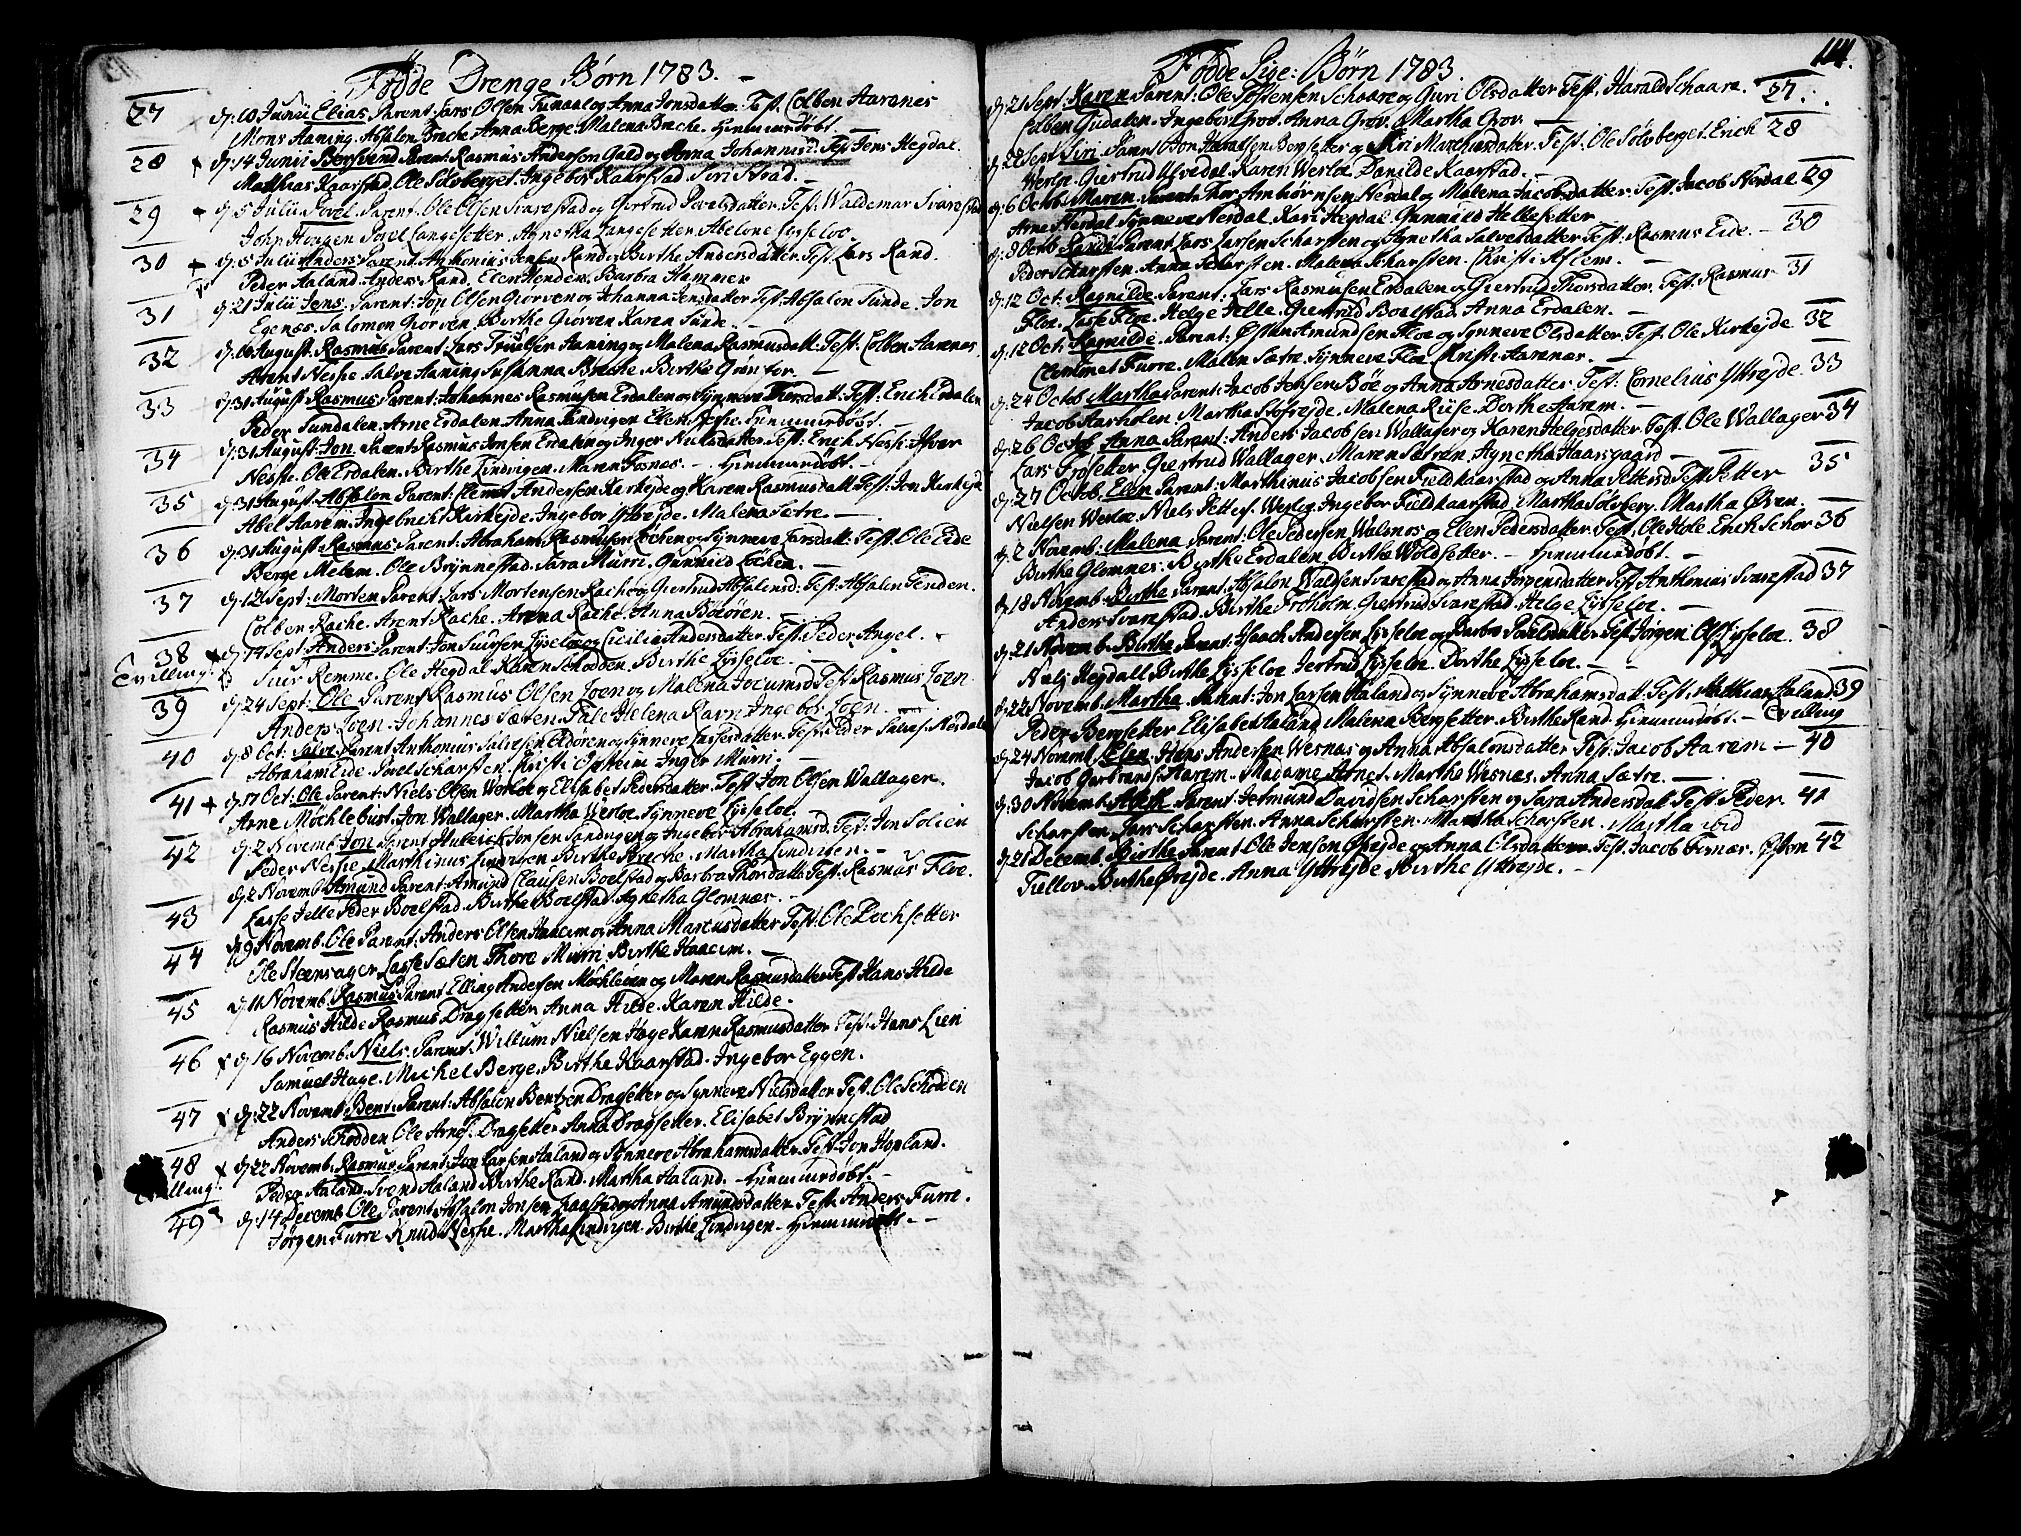 Fødde Drenge Børn 1783.
27 d: 10 Junii Elias. Parent. Lars Olsen Tunaal og Anna Jonsdatter. Test. Colben Aarenes
Mons Haning. Absalon Breche. Anna Berge. Malena Breche. Hiemmedøbt.
28 d: 14 Junii Parent. Rasmus Andersen Gald og Anna Johannisd. Test Jens Hegdal.
Matthias Kaarstad. Ole Sølvberget. Ingebor Kaarstad. Siri
29 d: 5 Julii Povel. Parent. Ole Olsen Svarestad og Giertrud Povelsdatter. Test. Waldemar Svarestad
John Haugen Povel Langesetter. Agnetha Langesetter. Abelone Lysseloe.
30 d: 5 Julii Anders. Parent. Anthonius Jensen Rand og Berthe Andersdatter. Test. Lars Rand.
Peder Aaland. Anders Rand. Elen Henden. Barbra Hammer
31 d: 21 Julii Jens. Parent: Jon Olsen Giørven og Johanna Jensdatter. Test: Absalon Sunde. Jon
Egenæs. Salomon Giørven. Birthe Giørven. Karen Sunde.
32 d: 10 August. Rasmus. Parent: Lars Truelsen Haning og Malena Rasmusdatt: Test: Colben Aarenes.
Arent Nesse. Salve Haning. Susanna Breche. Birthe Grønfor.
33 d: 31 August. Rasmus. Parent: Johannes Rasmusen Erdalen og Synneve Thorsdatt: Test: Erich Erdalen
Peder Sundalen. Arne Erdalen. Anna Lindvigen. Elen Nesse. Hiemmedøbt.
34 d: 31 August: Jon. Parent. Rasmus Jonsen Erdalen og Inger Nielsdatter. Test: Erich Nesse. Ifver
Nesse. Ole Erdalen. Birthe Lindvigen. Maren Fosnes. - Hiemmedøbt.
35 d: 31 August: Absalon. Parent: Clemet Andersen Kirkejde og Karen Rasmusdatt. Test: Jon Kirkejde
Abel Aarem. Ingebricht Kirkejde. Ingebor Yttrejde. Malena Sætre.
36 d: 31 August. Rasmus. Parent: Abraham Rasmusen Løchen og Synneve Larsdatt: Test: Ole Eide
Berge Melem. Ole Brynnestad. Sara Murri. Gunnild Løchen.
37 d: 12 Sept: Morten. Parent: Lars Mortensen Rache og Giertrud Absalonsd. Test: Absalon Tenden.
Colben Rache. Arent Rache. Anna Rache. Anna Bøeøien.
38 d: 14 Sept: Anders. Parent: Jon Siursen Lysseloe og Cicilia Andersdatter. Test: Peder Angel.
Tvilling Siur Remme. Ole Hegdal. Karen Schodden. Birthe Lysseloe.
39 d: 24 Sept: Ole Parent Rasmus Olsen Loen og Malena Jocumsd Test: Rasmus Loen
Anders Loen. Johannes Sæten. Helena Ravn. Ingebor Loen.
40 d: 8 Oct: Salve. Parent Anthonius Salvesen Eldøren og Synneve Lassesdatter. Test: Peder Salves. Nesdal
Abraham Eide. Povel Scharsten. Christi Opheim. Inger Murri.
41 d: 17 Oct: Ole. Parent: Niels Olsen Werloe og Elisabet Pedersdatter. Test: Jon Olsen Wallager.
Arne Møchlebust. Jon Wallager. Martha Werloe. Synneve Lysseloe.
42 d: 2 Novemb. Jon. Parent Jonsen Sandvigen og Ingebor Abrahamsd. Test: Jon Solien
Peder Nesse. Marthinus Lindvigen. Birthe Breche. Martha Lindvigen.
43 d: 2 Novemb. Amund. Parent: Amund Clausen Boelstad og Barbra Thorsdatt. Test: Rasmus Floe.
Lasse Jelle. Peder Boelstad. Birthe Boelstad. Agnetha Glomnæs.
44 d: 9 Novemb. Ole. Parent: Anders Olsen Haaeim og Anna Marcusdatter. Test: Ole Dochsetter
Ole Steensager. Lasse Sæten. Thore Murri. Birthe Haaeim.
45 d: 11 Novemb. Rasmus. Parent Elling Andersen Møchleøen og Maren Rasmusdatter. Test: Hans Hilde
Rasmus Hilde. Rasmus Dragsetter. Anna Hilde. Karen Hilde.
46 d: 16 Novemb. Niels. Parent. Willum Nielsen Hage Karen Rasmusdatter. Test: Hans Lien
Samuel Hage. Michel Berge. Birthe Kaarstad. Ingebor Eggen.
47 d: 22 Novemb. Bent. Parent: Absalon Bentsen Dragsetter og Synneve Nielsdatter. Test: Ole Schodden
Anders Schodden. Ole Arnes. Dragsetter. Anna Dragsetter. Elisabet Brynnestad
48 d: 22 Novemb. Rasmus. Parent. Jon Larsen Aaland og Synneve Abrahamsdatter. Test: Jon Hopland.
Tvilling Peder Aaland. Svend Aaland. Birthe Rand. Martha Aaland. - Hiemmedøbt.
49 d: 14 Decemb. Ole. Parent. Absalon Jonsen og Anna Amundsdatter. Test: Anders Furre.
Jørgen Furre. Knud Nesse. Martha Lindvigen. Birthe Lindvigen. Hiemmedøbt.
114.
Fødde Pige: Børn 1783.
d: 21 Sept. Karen. Parent. Ole Tostensen Schaare og Guri Olsdatter. Test. Harald Schaare. 27.
Colben Gudalen. Ingebor Grov. Anna Grov. Martha Grov.
d: 28 Sept. Siri. Parent: Jon Jonsen Bergsetter og Siri Matthiasdatter. Test: Ole Sølvberget. Erich 28
Werloe. Giertrud Ulvedal. Karen Werloe. Danilde Kaarstad.
d: 6 Octob. Maren. Parent: Thor Arnbiørnsen Nesdal og Malena Jacobsdatter. Test. Jacob Nesdal 29
Arne Nesdal. Synneve Nesdal. Kari Hegdal. Gunnild Hellesetter.
d: 8 Octob. Randi. Parent. Lars Larsen Scharsten og Agnetha Salvesdatter. Test: Rasmus Eide. 30
Peder Scharsten. Anna Scharsten. Malena Scharsten. Christi Aslem.
d: 12 Oct: Ragnilde. Parent: Lars Rasmusen Erdalen og Giertrud Thorsdatter. Test. Rasmus 31
Floe. Lasse Floe. Helge Jelle. Giertrud Boelstad. Anna Erdalen.
d: 12 Oct: Ragnilde. Parent: Østen Amundsen Floe og Synneve Olsdatter. Test. Ole Kirkejde 32
Clemmet Furre. Malen Sætre. Synneve Floe. Christi Aarenæs.
d: 24 Octob. Martha. Parent: Jacob Jensen Bøe og Anna Arnesdatter. Test: Cornelius Yttrejde. 33
Jacob Aarholen. Martha Stofrejde. Malena Riise. Dorthe Aarem.
d: 26 Octob. Anna. Parent: Anders Jacobsen Wallager og Karen Helgesdatter. Test. Ole Wallager 34
Lars Frøsetter. Giertrud Wallager. Maren Sætren. Agnetha Haarsgaard
d: 27 Octob. Elen. Parent: Marthinus Jacobsen Fieldkaarstad og Anna Pettersd Test Petter 35
Nielsen Werloe. Niels Petters. Werloe. Ingebor Fieldkaarstad. Martha Sølvberg. Martha Øvren.
d: 2 Novemb: Malena. Parent: Ole Pedersen Walsnes og Elen Pedersdatter. Test. Ole Hole. Erich Schor 36
Birthe Glomnes. Birthe Erdalen. Birthe Woldsetter. - Hiemmedøbt.
d: 18 Novemb. Birthe. Parent: Absalon Waldsen Svarestad og Anna Jørgensdatter Test Anthonius Svarestad 37
Anders Svarestad. Birthe Frøholm. Giertrud Svarestad. Helge Lysseloe.
d: 21 Novemb. Birthe. Parent: Isaach Andersen Lysseloe og Barbra Povelsdatter. Test Jørgen Ols. Lysseloe. 38
Niels Hegdall. Birthe Lysseloe. Jertrud Lysseloe. Dorthe Lysseloe.
d: 22 Novemb. Martha. Parent: Jon Larsen Aaland og Synneve Abrahamsdatt. Test. Matthias Aaland 39
Peder Bergsetter. Elisabet Aaland. Malena Bergsetter. Birthe Rand. Hiemmedøbt. - Tvilling
d: 24 Novemb. Elen. Hans Andersen Wesnæs og Anna Absalonsdatter. Test. Jacob Aarem - 40
Jacob Garbrands. Aarem. Madame Arnes. Marthe Wesnæs. Anna Sætre.
d: 30 Novemb. Parent. Jetmund Davidsen Scharsten og Sara Andersdatt. Test. Peder 41
Scharsten. Lars Scharsten. Anna Scharsten. Martha Scharsten. Martha ibid
d: 21 Decemb. Birthe. Parent. Ole Jensen Øvrejde og Anna Olsdatter. Test: Jacob Fosnæs. Østen 42
Tiellov. Birthe Øvrejde. Anna Yttrejde. Birthe Yttrejde.